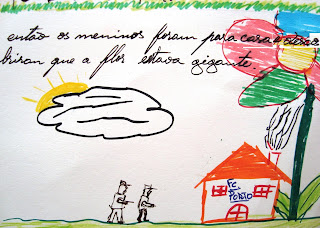 então os meninos foram para casa e desco
briram que a flor estava gigante.
FC.
Porto